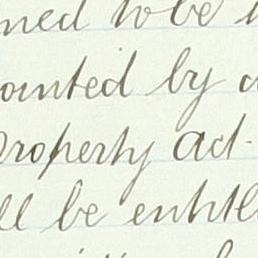 med to be
ounted by a
Property Act-
ll be entitle